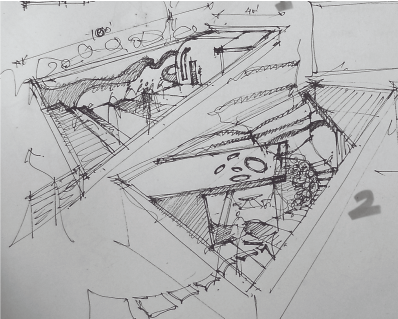 100'
40'
2